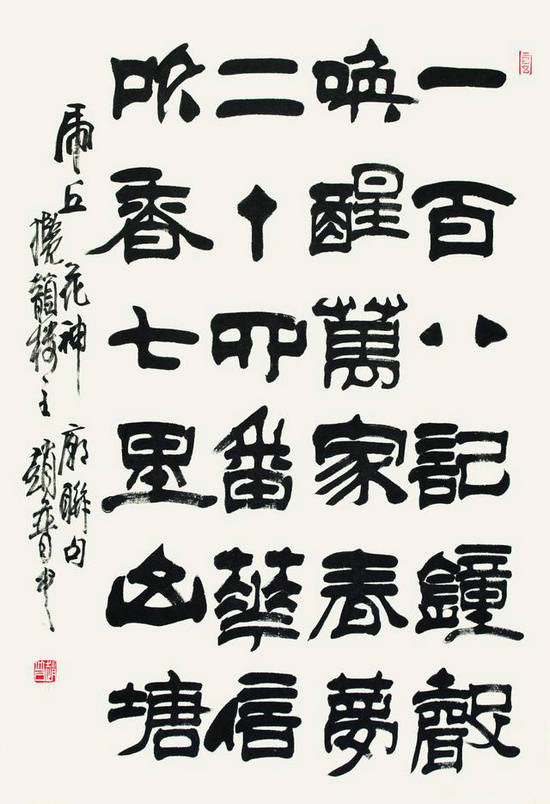 一百八記鐘聲
喚醒萬家春夢
二十四番華信
吹香七里山塘
虎丘花神廟聯句
樓主趙普書